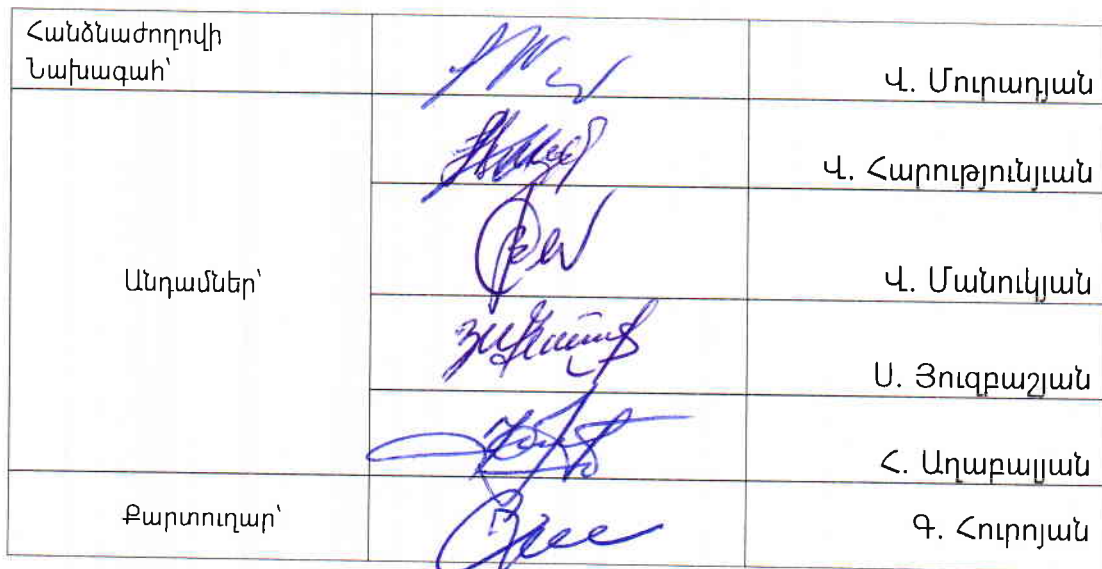 Հանձնաժողովի
Նախագահ՝
Վ. Մուրադյան
Վ. Հարությունյան
Անդամներ՝
Վ. Մանուկյան
Ս. Յուզբաշյան
Հ. Աղաբալյան
Քարտուղար՝
Գ. Հուրոյան